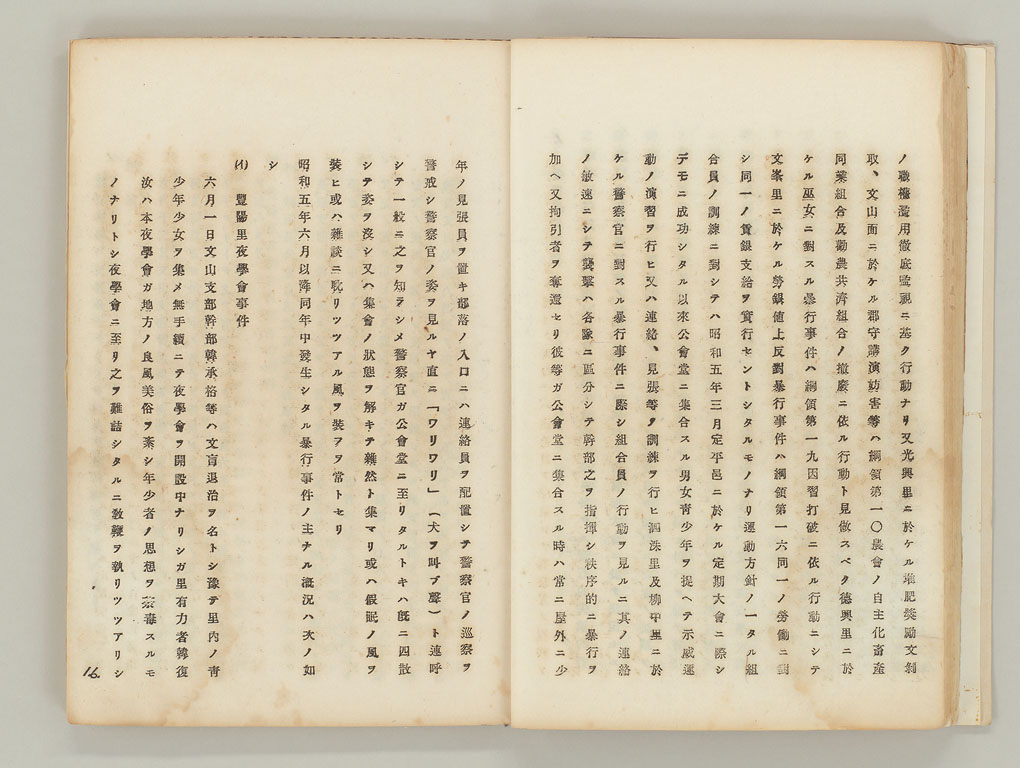 ノ職權濫用徹底監視ニ基ク行動ナリ又光興里ニ於ケル堆肥奬勵文剝
取、文山面ニ於ケル郡守講演妨害等ハ綱領第一〇農會ノ自主化畜産
同業組合及勸農共濟組合ノ撤廢ニ依ル行動ト見做スベク德興里ニ於
ケル巫女ニ對スル暴行事件ハ綱領第一九因習打破ニ依ル行動ニシテ
文峯里ニ於ケル勞銀値上反對暴行事件ハ綱領第一六同一ノ勞働ニ對
シ同一ノ賃銀支給ヲ實行セントシタルモノナリ運動方針ノ一タル組
合員ノ訓練ニ對シテハ昭和五年三月定平邑ニ於ケル定期大會ニ際シ
デモニ成功シタル以來公會堂ニ集合スル男女靑少年ヲ捉ヘテ示威運
動ノ演習ヲ行ヒ又ハ連絡、見張等ヲ訓練ヲ行ヒ洄洙里及柳中里ニ於
ケル警察官ニ對スル暴行事件ニ際シ組合員ノ行動ヲ見ルニ其ノ連絡
ノ敏速ニシテ襲擊ハ各隊ニ區分シテ幹部之ヲ指揮シ秩序的ニ暴行ヲ
加ヘ又拘引者ヲ奪還セリ彼等ガ公會堂ニ集合スル時ハ常ニ屋外ニ少
年ノ見張員ヲ置キ部落ノ入口ニハ連絡員ヲ配置シテ警察官ノ巡察ヲ
警戒シ警察官ノ姿ヲ見ルヤ直ニ「ワリワリ」(犬ヲ叫ブ聲)ト連呼
シテ一般ニ之ヲ知ラシメ警察官ガ公會堂ニ至リタルトキハ旣ニ四散
シテ姿ヲ沒シ又ハ集會ノ狀態ヲ解キテ雜然ト集マリ或ハ假眠ノ風ヲ
裝ヒ或ハ雜談ニ耽リツツアル風ヲ裝ヲヲ常トセリ
昭和五年六月以降同年中發生シタル暴行事件ノ主ナル槪況ハ次ノ如
シ
(イ) 豐陽里夜學會事件
六月一日文山支部幹部韓承格等ハ文盲退治ヲ名トシ豫テ里內ノ靑
少年少女ヲ集メ無手續ニテ夜學會ヲ開設中ナリシガ里有力者韓復
汝ハ本夜學會ガ地方ノ良風美俗ヲ紊シ年少者ノ思想ヲ茶毒スルモ
ノナリトシ夜學會ニ至リ之ヲ難詰シタルニ敎鞭ヲ執リツツアリシ
16.